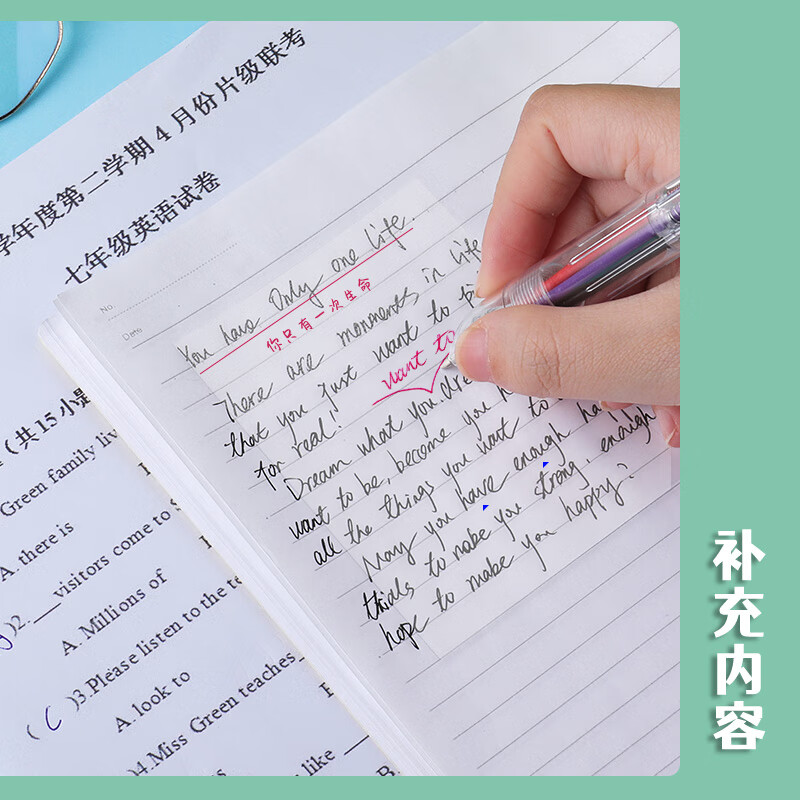 学年度第二学期4月份片级联考
七年级英语试卷
No.
Date
You have Only one life.
你只有一次生命
There are moments in life
that you just want to
want to
for real!
Dream what you
want to be, become you
all the things you want to
May you have enough
trials to make you strong, enough
hope to make you happy?
（共15小题
Green family
A. there is
)2.__visitors come to
A. Millions of
(C)3.Please listen to the
A. look to
)4.Miss Green teaches
like
补充内容